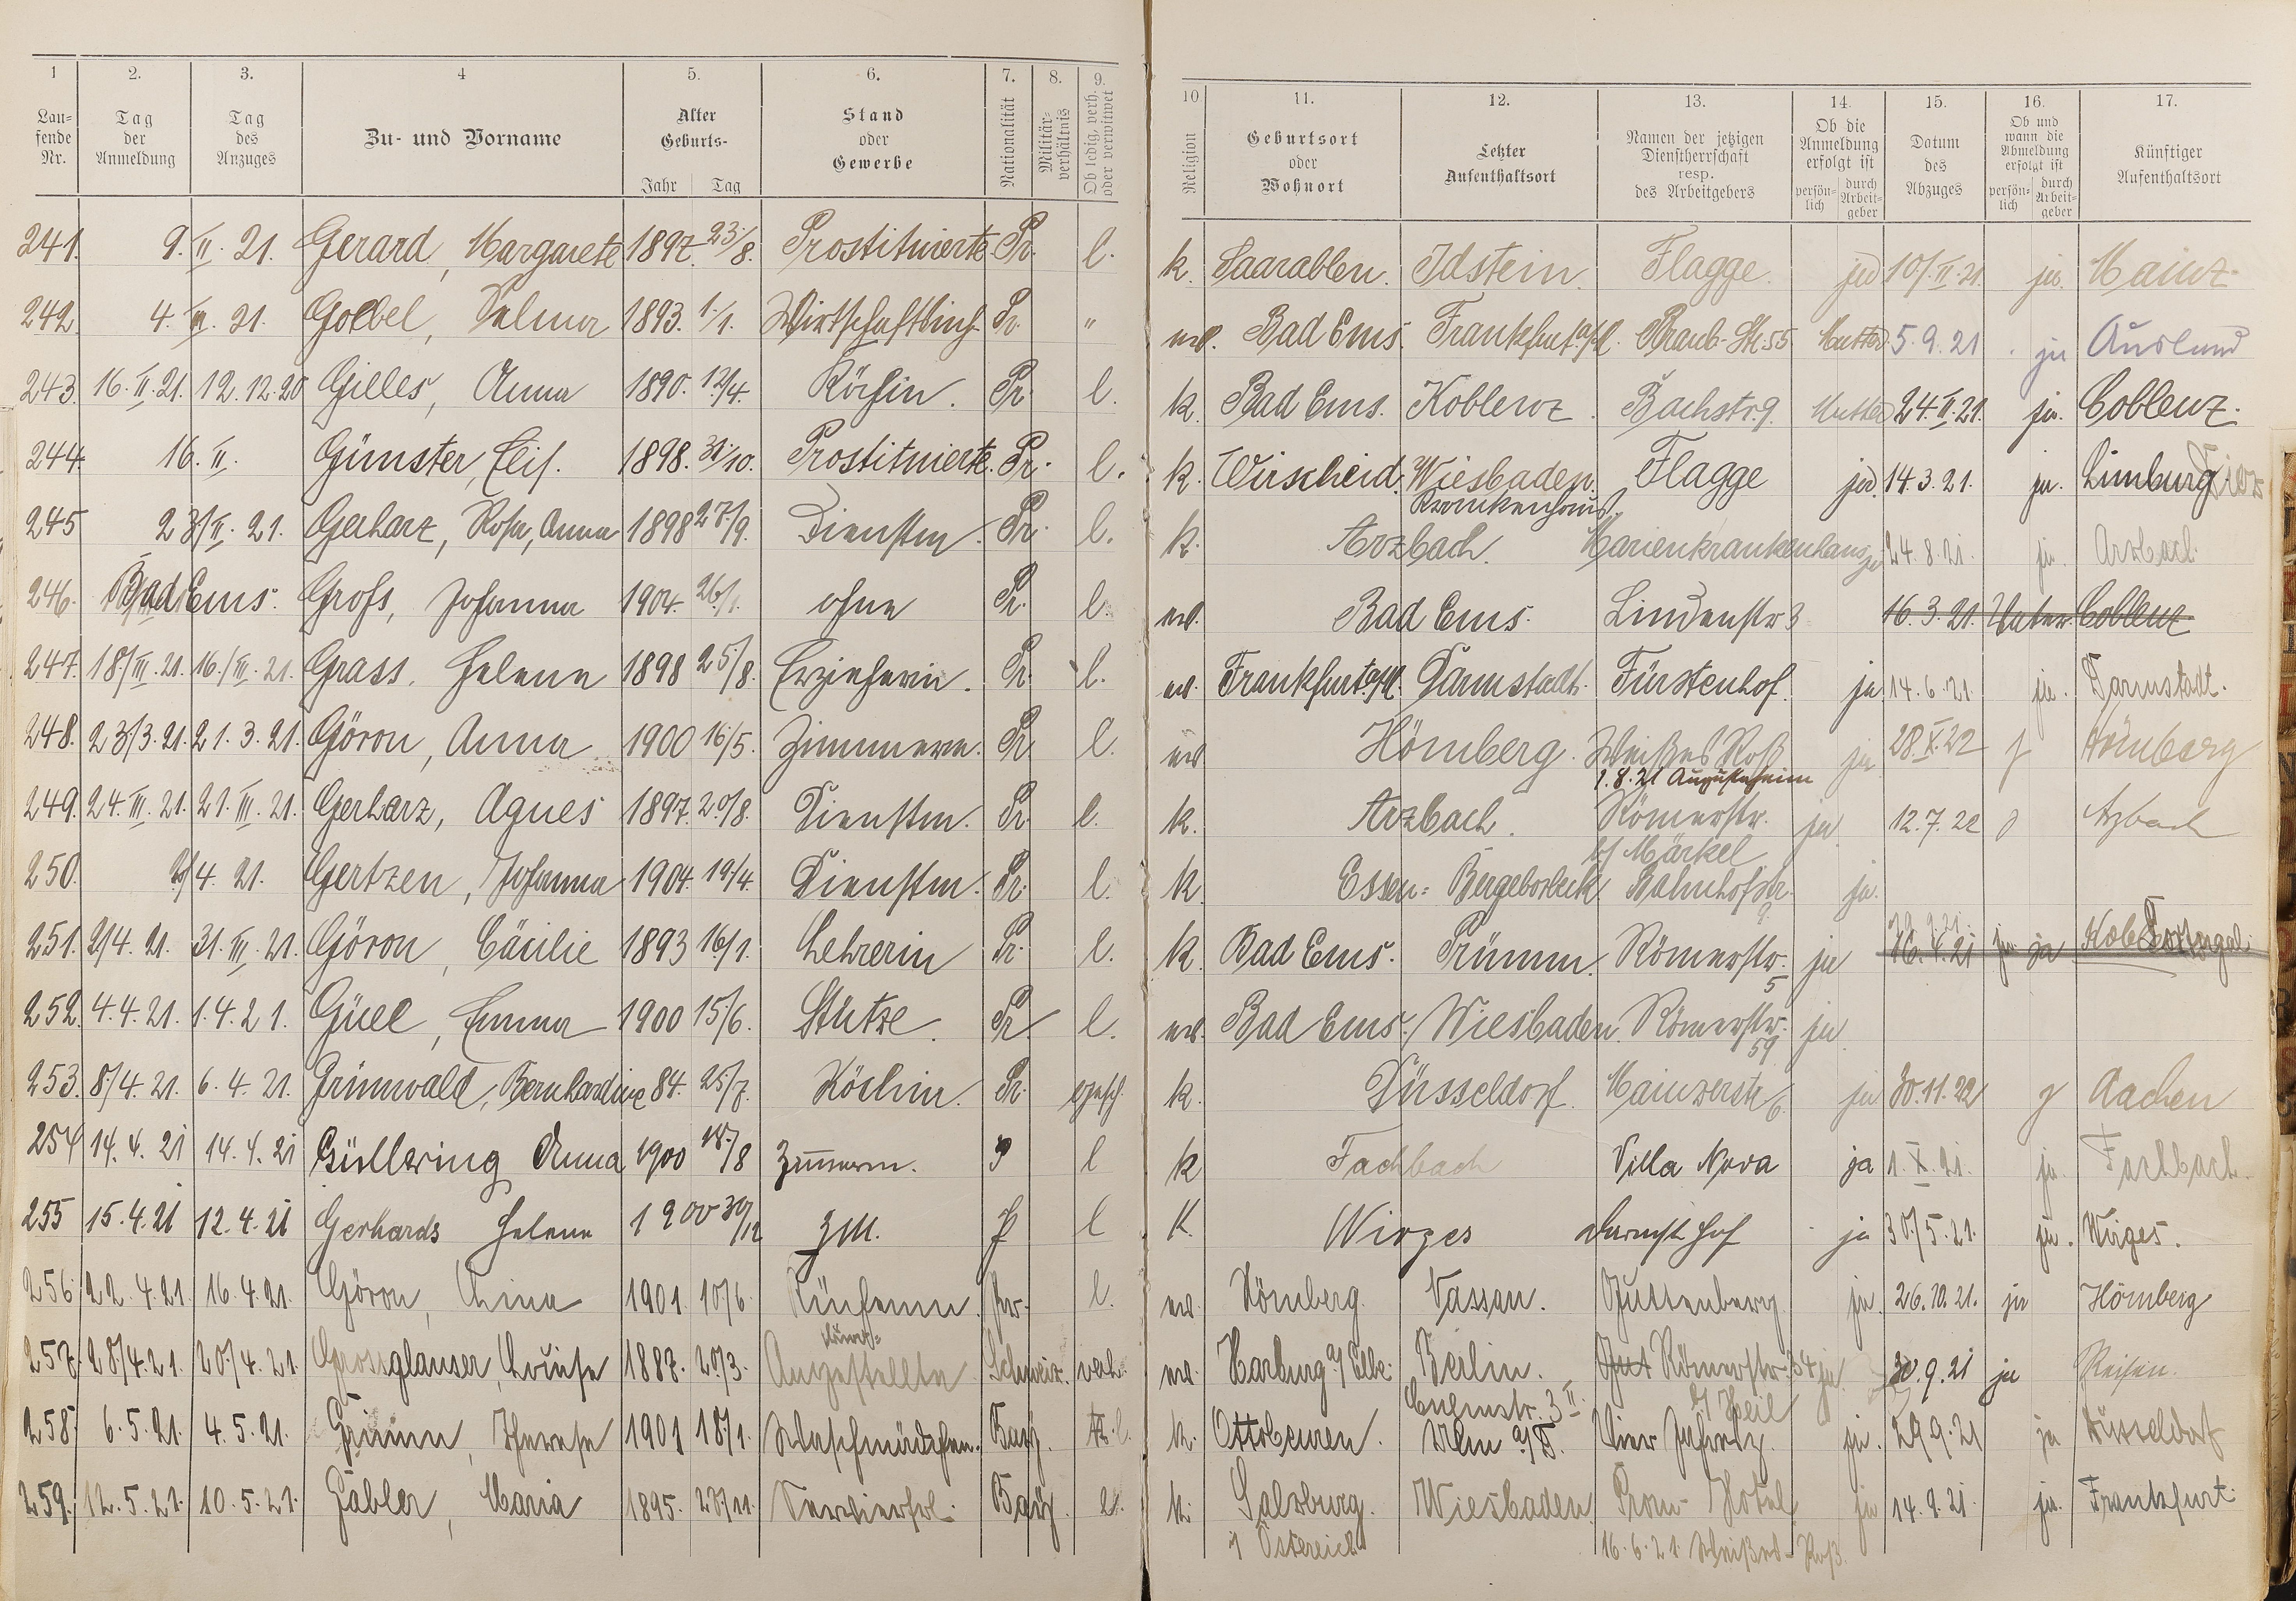 1 2. 3. 4 5. 6. 7. 8. 9. 10 11. 12. 13. 14. 15. 16. 17.
Laufende Nr. Tag der Anmeldung Tag des Anzuges Zu- und Vorname Alter Geburts- Jahr Tag Stand oder Gewerbe Nationalität Militärverhältnis Ob ledig, verh. oder verwitwet Religion Geburtsort oder Wohnort Letzter Aufenthaltsort Namen der jetzigen Dienstherrschaft resp. des Arbeitgebers Ob die Anmeldung erfolgt ist persönlich durch Arbeitgeber Datum des Abzuges Ob und wann die Abmeldung erfolgt ist persönlich durch Arbeitgeber Künftiger Aufenthaltsort
241. 9. II. 21. Gerard, Margarete 1897. 23./8. Prostituierte Pr. l. k. Idstein. Flagge. 10/II.21. ja. Mainz.
242. 21. Goebel, Selma 1893. 1./1. Pr. " Bad Ems. Frankfurt a/M. 55 Mutter 5.9.21 ja Ausland
243. 16.II.21. 12.12.20 Gilles, Anna 1890. 12/4. Köchin. Pr. l. k. Bad Ems. Koblenz. Bachstr. 9. Mutter 24.II.21. ja. Coblenz.
244. 16. II. Günster, Elis. 1898. 31./10. Prostituierte. Pr. l. k. Wirscheid. Wiesbaden. Krankenhaus. Flagge 14.3.21. ja. Limburg
245 23/II. 21. Gerharz, Rosa, Anna 1898 27./9. Dienstm. Pr. l. k. Arzbach. Marienkrankenhaus ja 24.8.21. ja. Arzbach.
246. Bad Ems. Groß, Johanna 1904. 26./1. ohne Pr. l. Bad Ems. Lindenstr 3 16.3.21. Coblenz
247. 18./III.21. 16./III.21. Grass, Helene 1898 25./8. Erzieherin. Pr. l. Frankfurt a/M. Darmstadt. Fürstenhof. ja. 14.6.21. ja. Darmstadt.
248. 23/3.21. 21.3.21. Göron, Anna 1900 16./5. Zimmerm. Pr. l. Hömberg. Weißes Roß 1.8.21 Augustaheim ja 28.X.22 Hömberg
249. 24.III.21. 21.III.21. Gerharz, Agnes 1897. 20/8. Dienstm. Pr. l. k. Arzbach. Römerstr. b/ Märkel ja. 12.7.22 Arzbach
250. 2/4. 21. Gertzen, Johanna 1904. 19./4. Dienstm. Pr. l. k. Essen-Bergeborbeck. Bahnhofstr. 9. ja.
251. 2/4.21. 31.III.21. Göron, Cäcilie 1893 16/1. Lehrerin Pr. l. k. Bad Ems. Prümm. Römerstr. 5 ja 16.4.21 ja
252. 4.4.21. 1.4.21. Güll, Emma 1900 15./6. Stütze. Pr. l. Bad Ems. Wiesbaden. Römerstr. 59 ja
253. 8/4.21. 6.4.21. Grünwald, Bernhardine 84. 25./7. Köchin. Pr. gesch. k. Düsseldorf. Mainzerstr 6. ja 30.11.22 Aachen
254 14.4.21 14.4.21 Güllering Anna 1900 18./8 Zimmerm. P l k Fachbach Villa Nova ja 1.X.21. ja. Fachbach.
255 15.4.21 12.4.21 Gerhards Helene 1900 30/12 ZM. P l K Wirges Darmst. Hof ja 30/5.21. ja. Wirges.
256. 22.4.21. 16.4.21. Göron, Lina 1901. 10/6. Pr. l. Hömberg. Nassau. Guttenberg. ja. 26.10.21. ja Hömberg
257. 28/4.21. 20./4.21. Grossglauser, Louise 1887. 20/3. Angestellte Schweiz. verh. Harburg a/Elbe. Berlin. Culmstr. 3 II. Römerstr. 34 b/ Heil ja. 30.9.21 ja Reisen.
258. 6.5.21. 4.5.21. Grimm, Therese 1901 18/1. Waschmädchen. Bay. l. k. Ottobeuren. Ulm a/D. Vier Jahresz. ja. 29.9.21 ja Düsseldorf
259. 12.5.21. 10.5.21. Gabler, Maria 1895. Servierfrl. Bay. l. k. Salzburg. i Östereich Wiesbaden. Prom-Hotel 16.6.21 Weißes-Roß. ja 14.9.21. ja. Frankfurt.